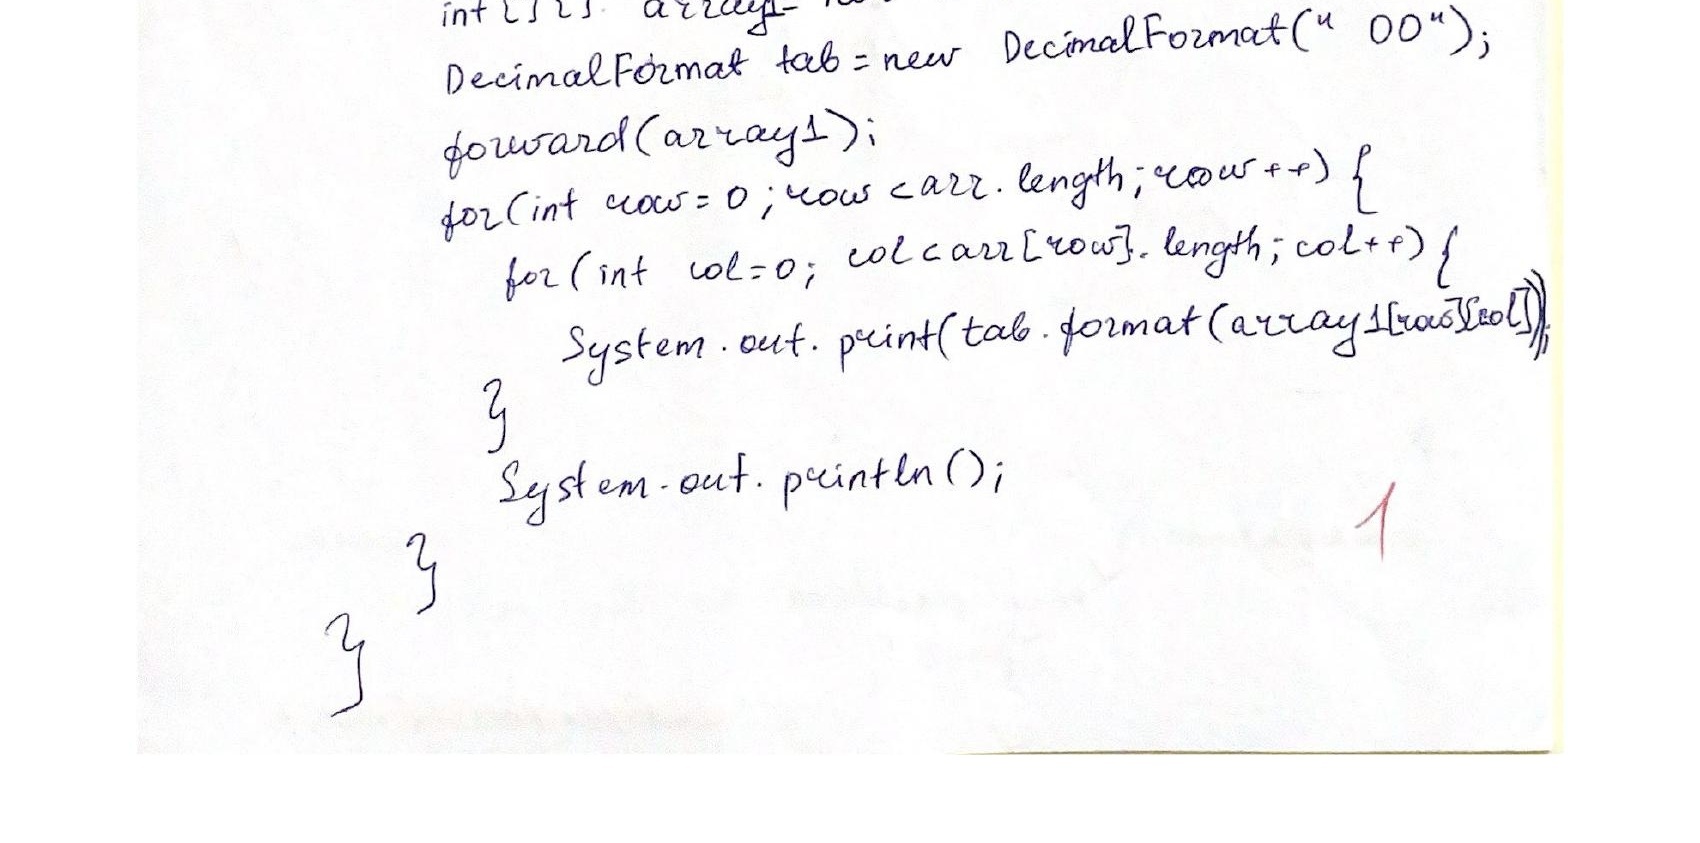 int[][] array1
DecimalFormat tab = new DecimalFormat(" 00");
forward(array1);
for(int row=0; row < arr.length; row++) {
for(int col=0; col < arr[row].length; col++) {
System.out.print(tab.format(array1[row][col]));
}
System.out.println();
1
}
}